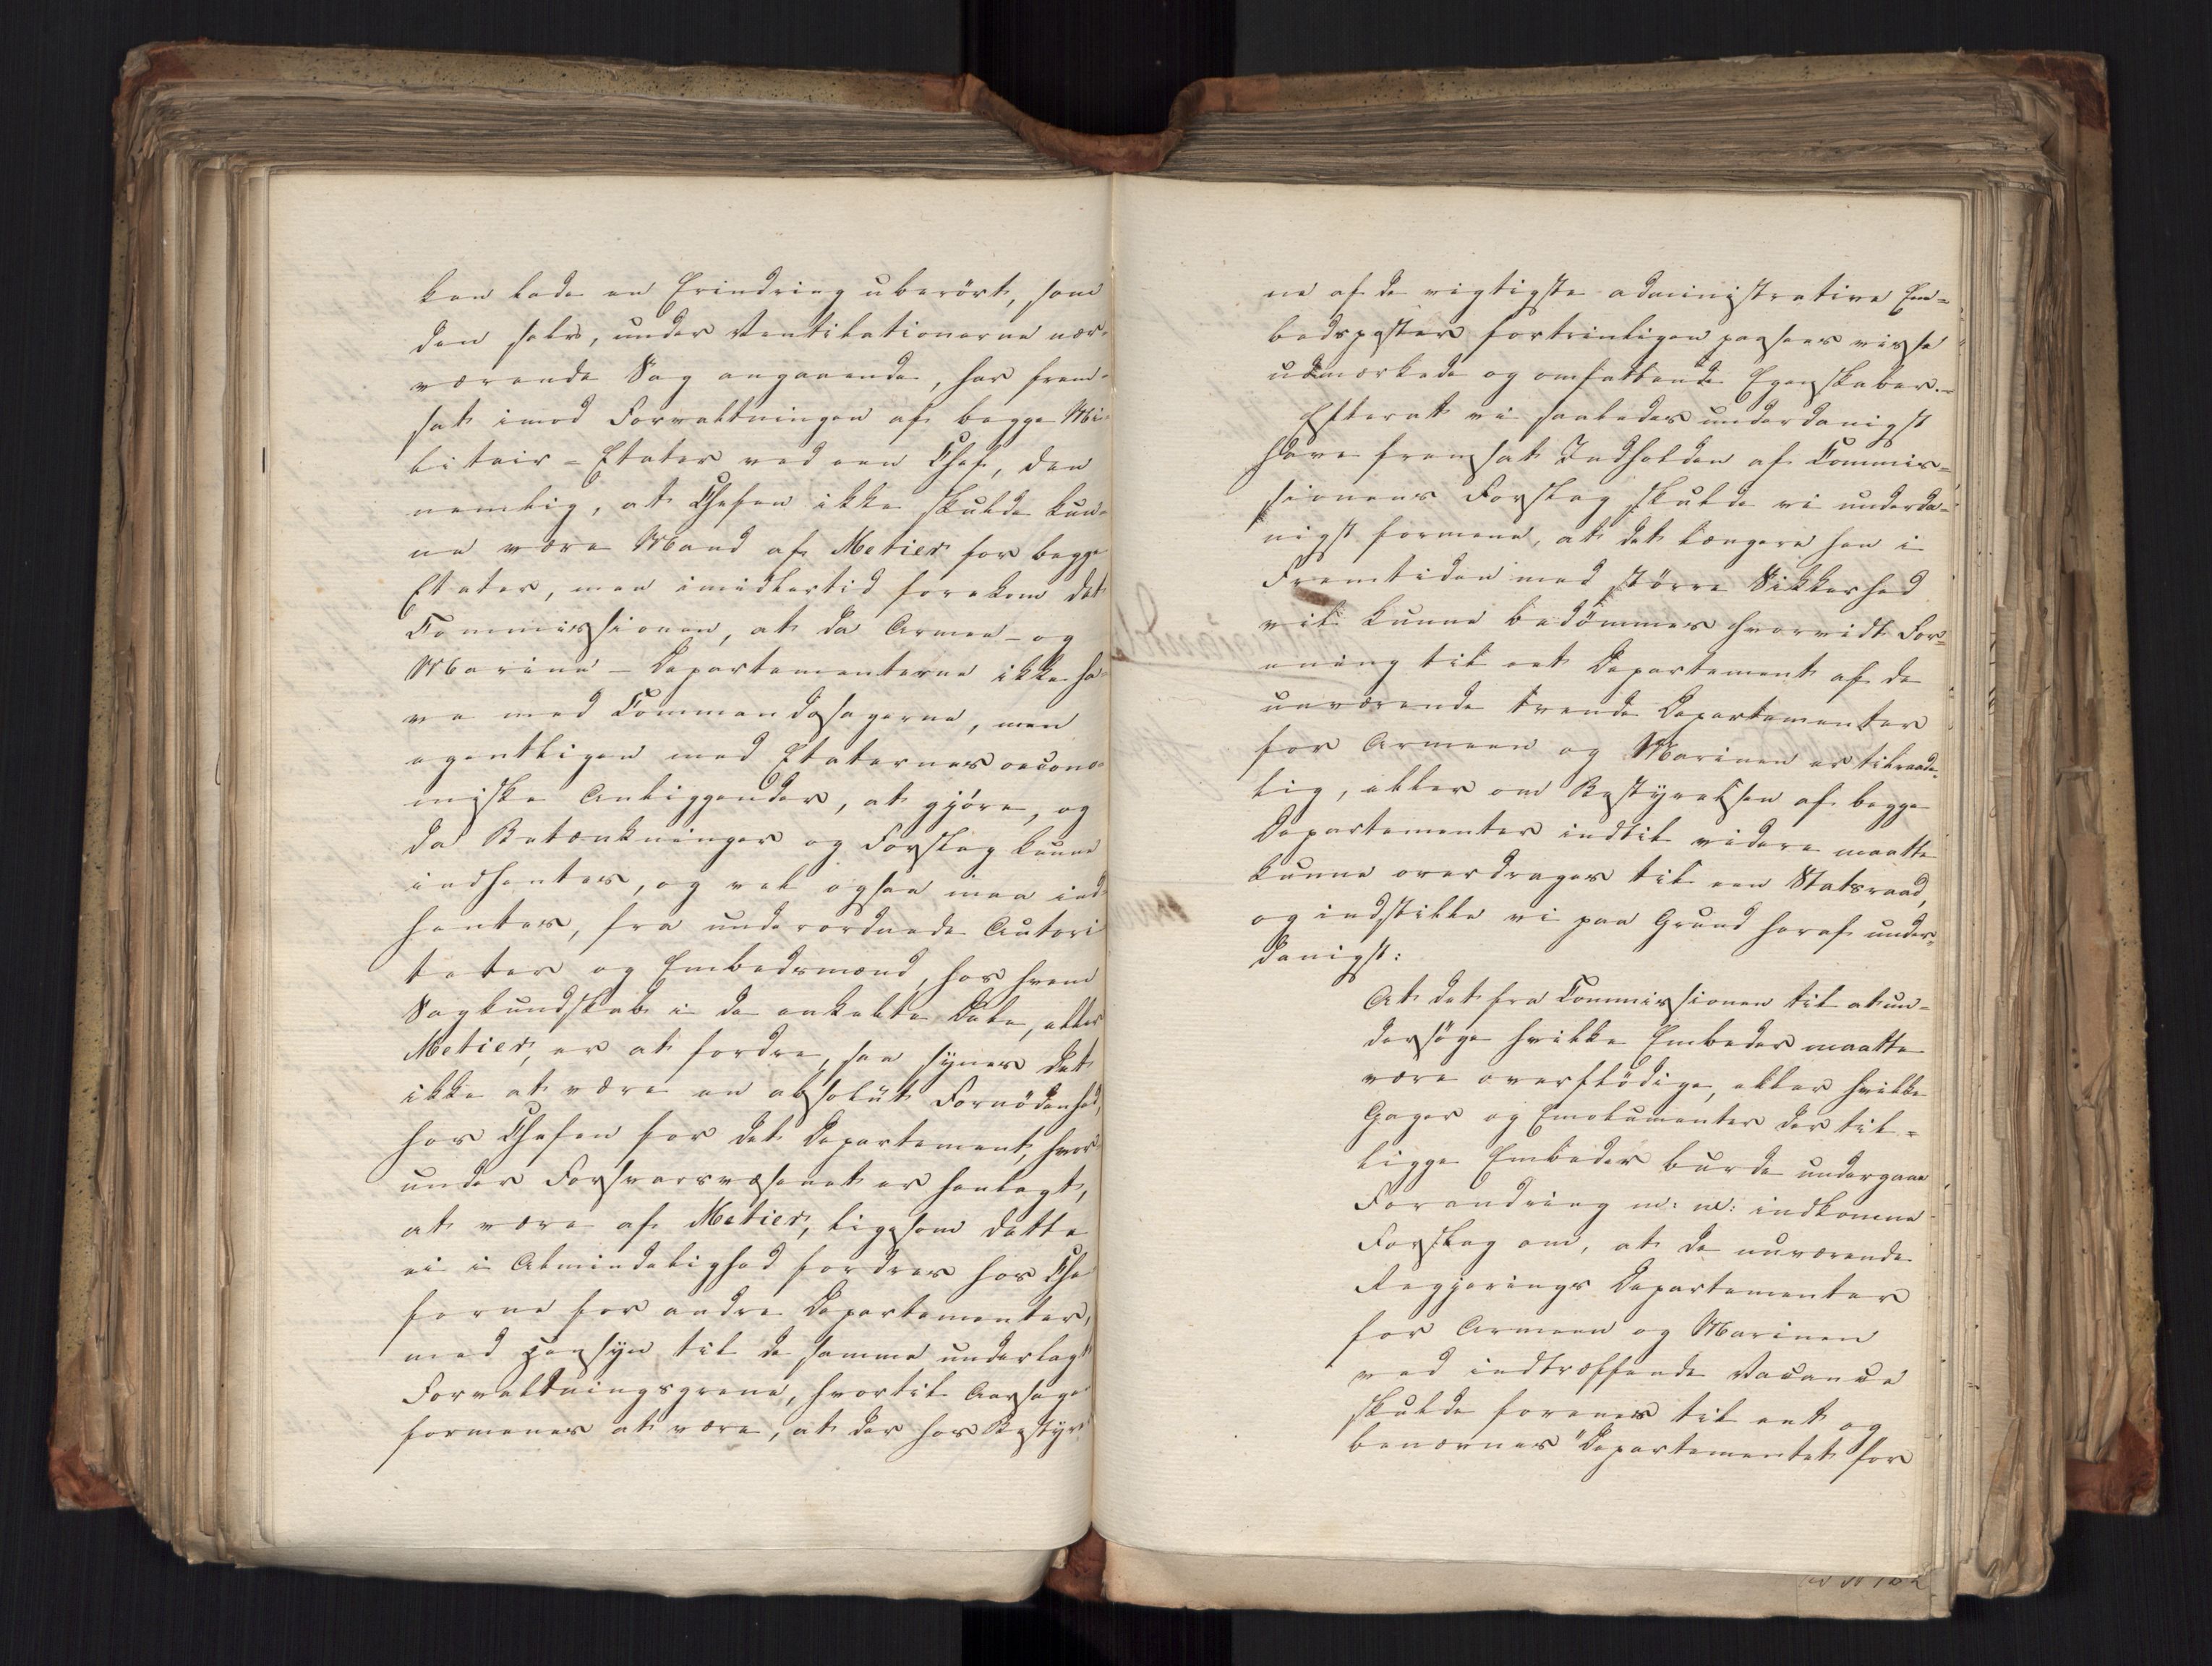 kan lade en Erindring uberört, som
den selv, under Ventilationerne nær-
værende Sag angaaende, har frem-
sat imod Forvaltningen af begge Mi-
litair-Etater ved een Chef, den
nemlig, at Chefen ikke skulde kun-
ne være Mand af Metier for begge
Etater, men imidlertid forekom det
Commissionen, at da Armee- og
Marine-Departementerne ikke ha-
ve med Commandosagerne, men
egentligen med Etaternes oecono-
miske Anliggender, at gjöre, og
da Betænkninger og Forslag kunne
indhentes, og vel ogsaa maa ind-
hentes, fra underordnede Autori
teter og Embedsmænd, hos hvem
Sagkundskab i de enkelte Dele, eller
Metier, er at fordre, saa synes det
ikke at være en absolut Fornödenhed,
hos Chefen for det Departement, hvor
under Forsvarsvæsenet er henlagt,
at være af Metier, ligesom dette
ei i Almindelighed fordres hos Che
ferne for andre Departementer,
med Hensyn til de samme underlagte
Forvaltningsgrene, hvortil Aarsagen
formenes at være, at der hos Bestyrer
ne af de vigtigste administrative Em-
bedsposter fortrinligen passes visse
udmærkede og omfattende Egenskaber.-
Efterat vi saaledes underdanigst
have fremsat Indholden af Commis-
sionens Forslag skulde vi underda-
nigst formene, at det længere hen i
Fremtiden med större Sikkerhed
vil kunne bedömmes hvorvidt For-
ening til eet Departement af de
nuværende tvende Departementer
for Armeen og Marinen er tilraade-
lig, eller om Bestyrelsen af begge
Departementer indtil videre maatte
kunne overdrages til een Statsraad,
og indstille vi paa Grund heraf under-
danigst:
At det fra Commissionen til at un-
dersöge hvilke Embeder maatte
være overflödige, eller hvilke
Gager og Emolumenter der til-
ligge Embeder burde undergaae
Forandring m: m: indkomne
Forslag om, at de nuværende
Regjerings Departementer
for Armeen og Marinen
ved indtræffende Vacance
skulde forenes til eet og
benævnes "Departementet for